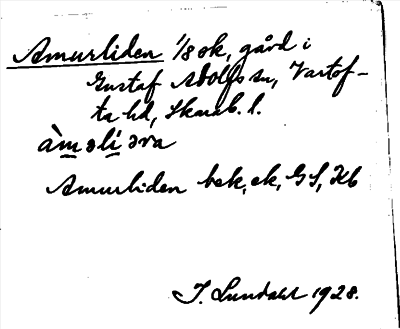 Amurliden 1/8 ok, gård i
Gustaf Adolfs sn, Vartof-
ta hd, Skarab. l.
àməlí əra
Amurliden bek, ek, GS, Hb
J. Lundahl 1928.